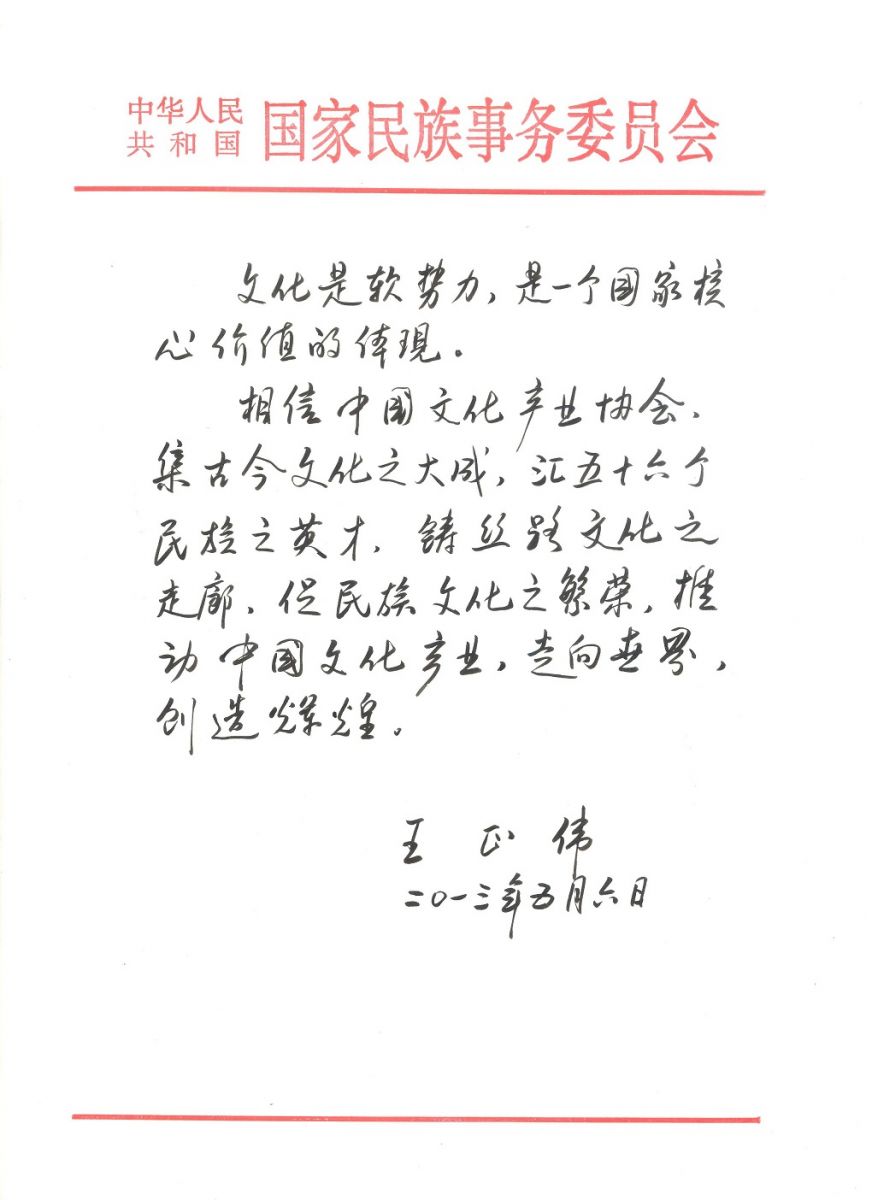 中华人民
共和国
国家民族事务委员会
文化是软势力,是一个国家核
心价值的体现。
相信中国文化产业协会、
集古今文化之大成,汇五十六个
民族之英才、铸丝路文化之
走廊、促民族文化之繁荣,推
动中国文化产业,走向世界,
创造辉煌。
王正伟
二〇一三年五月六日